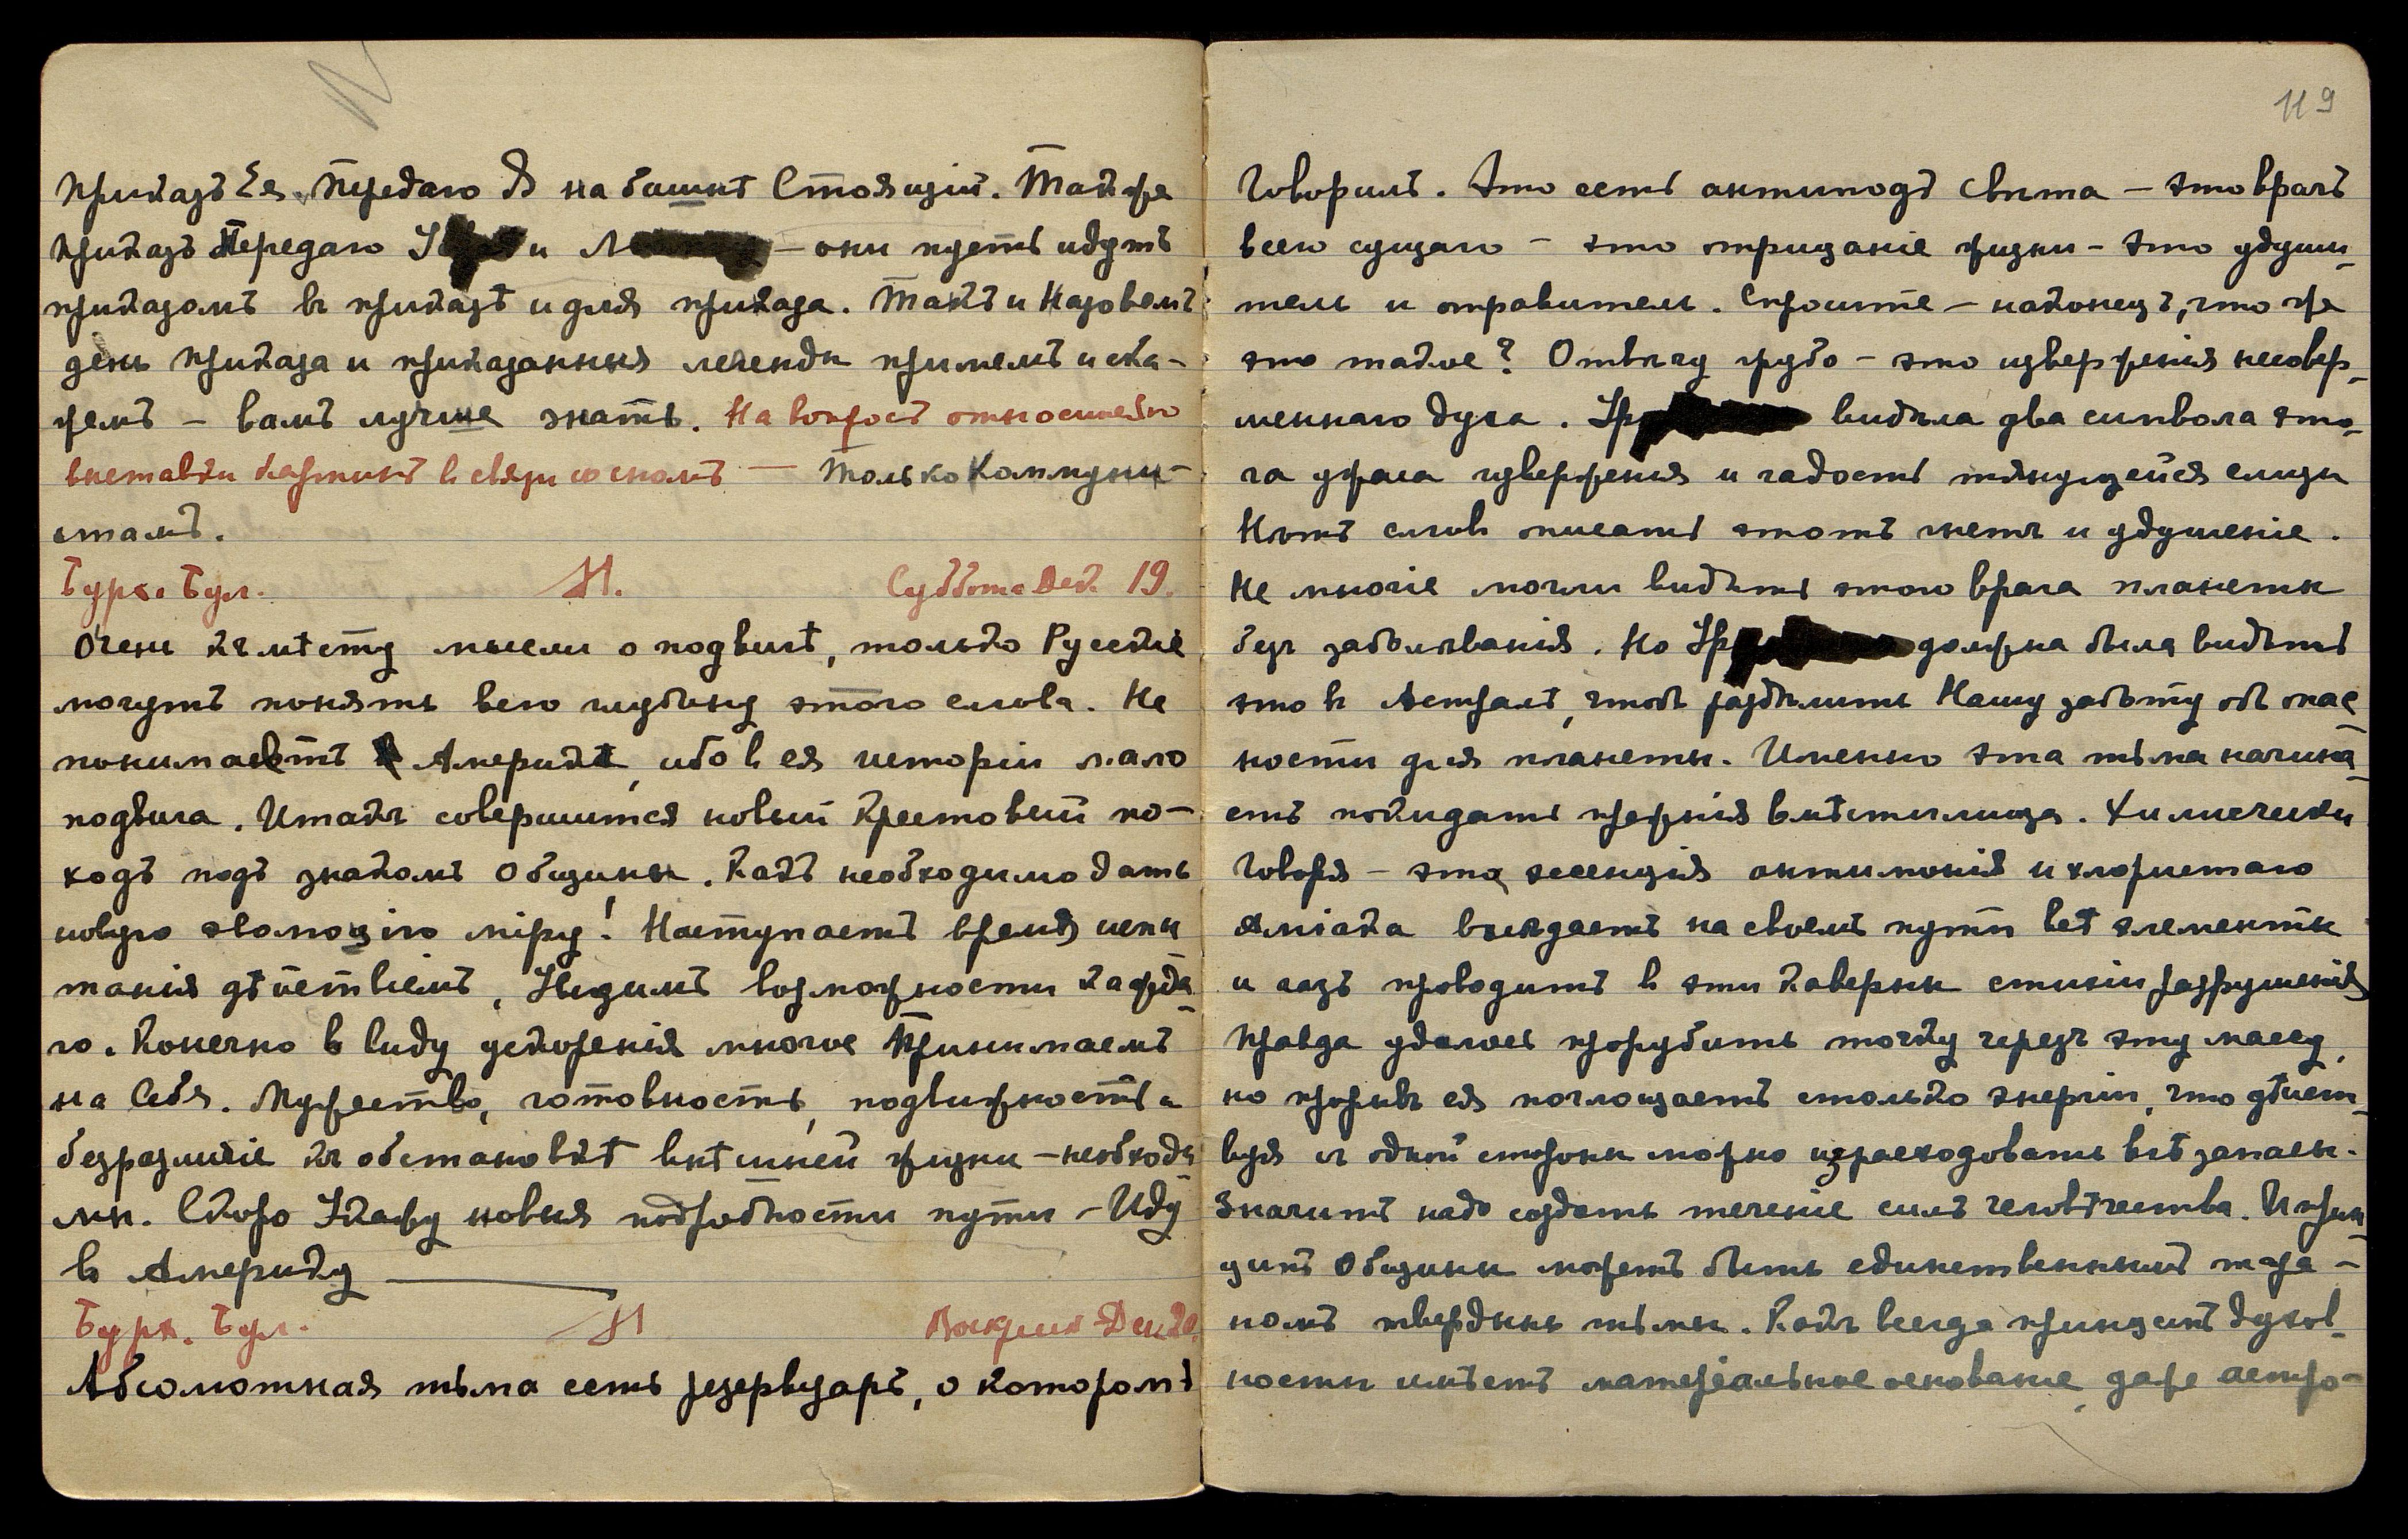 приказъ Ея. Передаю Я на башнѣ Стоящій. Также
приказъ Передаю и — они пусть идутъ
приказомъ въ приказѣ и для приказа. Такъ и Назовемъ
день приказа и приказанныя легенды примемъ и ска-
жемъ — вамъ лучше знать. На вопросъ относительно
выставки картинъ в связи со сномъ — Только Коммуни-
стамъ.
Бурх. Бул. М. Суббота Дек. 19.
Очень къ мѣсту мысли о подвигѣ, только Русскіе
могутъ понять всю глубину этого слова. Не
понимаютъ Америкѣ, ибо в ея исторіи мало
подвига. Итакъ совершится новый Крестовый по-
ходъ подъ знакомъ Общины. Какъ необходимо дать
новую эволюцію міру! Наступаетъ время испы
танія дѣйствіемъ, Увидимъ возможности каждa-
го. Конечно в виду ускоренія многое Принимаемъ
на Себя. Мужество, готовность, подвижность и
безразличіе къ обстановкѣ внѣшней жизни — необходи
мы. Скоро Укажу новыя подробности пути — Иду
в Америку
Бурх. Бул. М Воскресн Дек 20.
Абсолютная тьма есть резервуаръ, о которомъ
119
Говорилъ. Это есть антиподъ свѣта — это врагъ
всего сущаго — это отрицаніе жизни — это удуши-
тель и отравитель. Спросите — наконецъ, что же
это такое? Отвѣчу грубо — это изверженія несовер-
шеннаго духа. Ур видѣла два символа это-
га ужаса изверженія и гадость тянущейся слизи
Нѣтъ словъ описать этотъ гнетъ и удушеніе.
Не многіе могли видѣть этого врага планеты
безъ заболѣванія. Но Ур должна была видѣть
это в Астралѣ, чтобъ раздѣлить Нашу заботу объ опас
ности для планеты. Именно эта тьма начина-
етъ покидать прежнія вмѣстилища. Химически
Говоря — это эссенція антимонія и хлористаго
Аміака въѣдаетъ на своемъ пути всѣ элементы
и газъ проводитъ в эти каверны стихіи разрушенія
Правда удалось прорубить точку черезъ эту массу,
но прорывъ ея поглощаетъ столько энергіи, что дѣйст-
вуя съ одной стороны можно израсходовать всѣ запасы.
Значитъ надо создать теченіе силъ человѣчества. И прин-
ципъ Общины можетъ быть единственнымъ тара-
номъ твердыни тьмы. Какъ всегда принципъ духов-
ности имѣетъ матеріальное основаніе, даже астро-